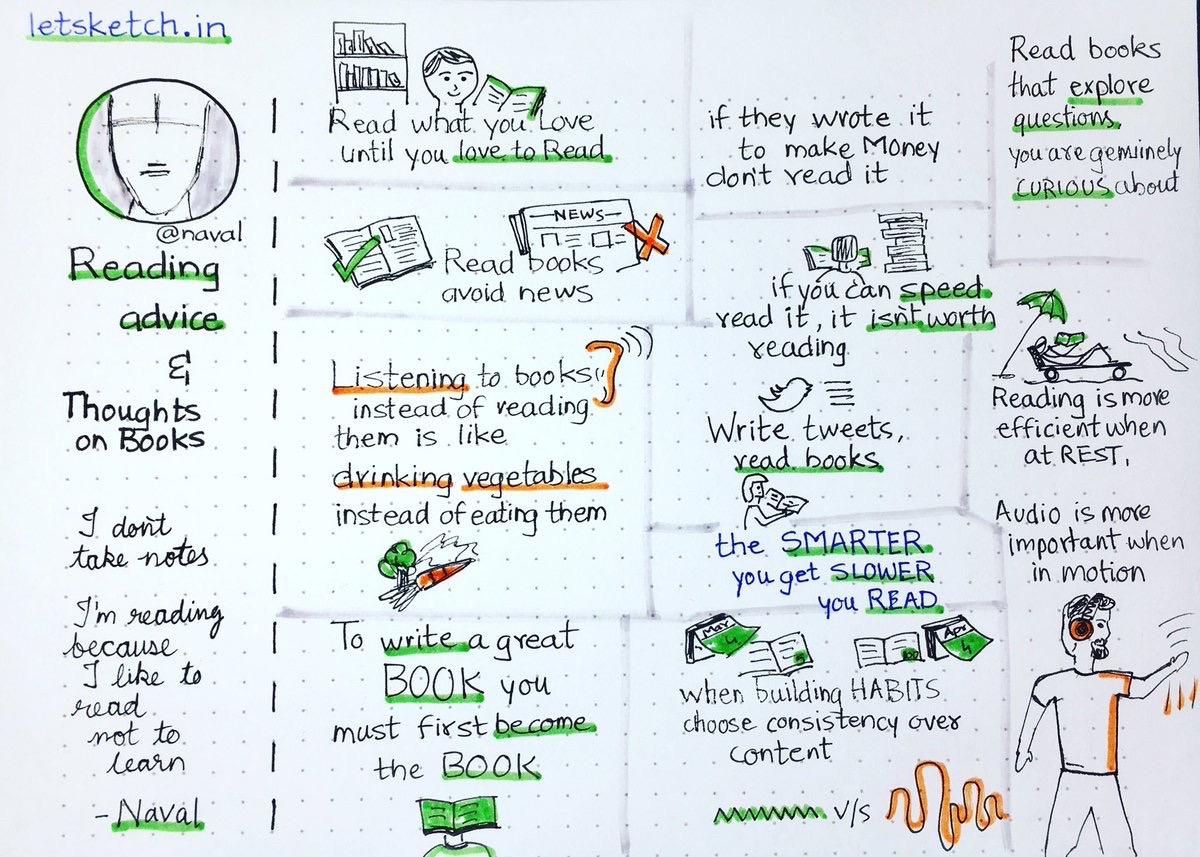 letsketch.in
@naval
Reading
advice
&
Thoughts
on Books
I don't
take notes
I'm reading
because
I like to
read
not to
learn
- Naval
Read what you Love
until you love to Read
NEWS
Read books
avoid news
Listening to books
instead of reading
them is like
drinking vegetables
instead of eating them
To write a great
BOOK you
must first become
the BOOK
if they wrote it
to make Money
don't read it
if you can speed
read it, it isn't worth
reading
Write tweets,
read books
the SMARTER
you get SLOWER
you READ
May
4
5
100
Apr
4
when building HABITS
choose consistency over
content
v/s
Read books
that explore
questions,
you are genuinely
CURIOUS about
Reading is more
efficient when
at REST,
Audio is more
important when
in motion